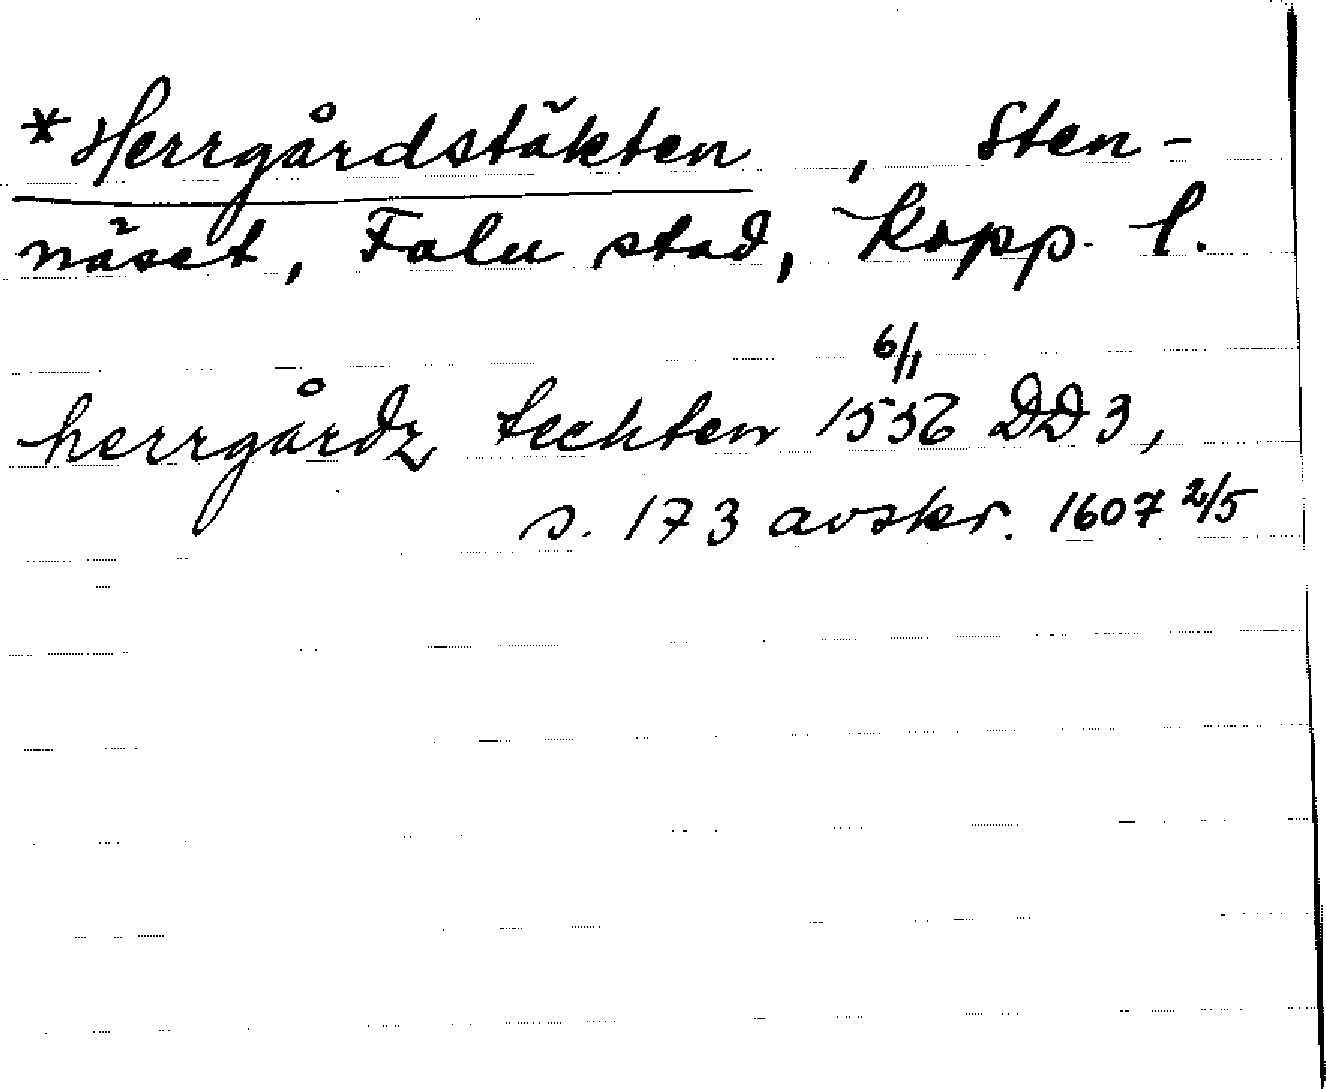 *Herrgårdstäkten, Sten-
näset, Falu stad, Kopp. l.
6/1
herrgårdz teckten 1556 DD 3,
s. 173 avskr. 1607 2/5